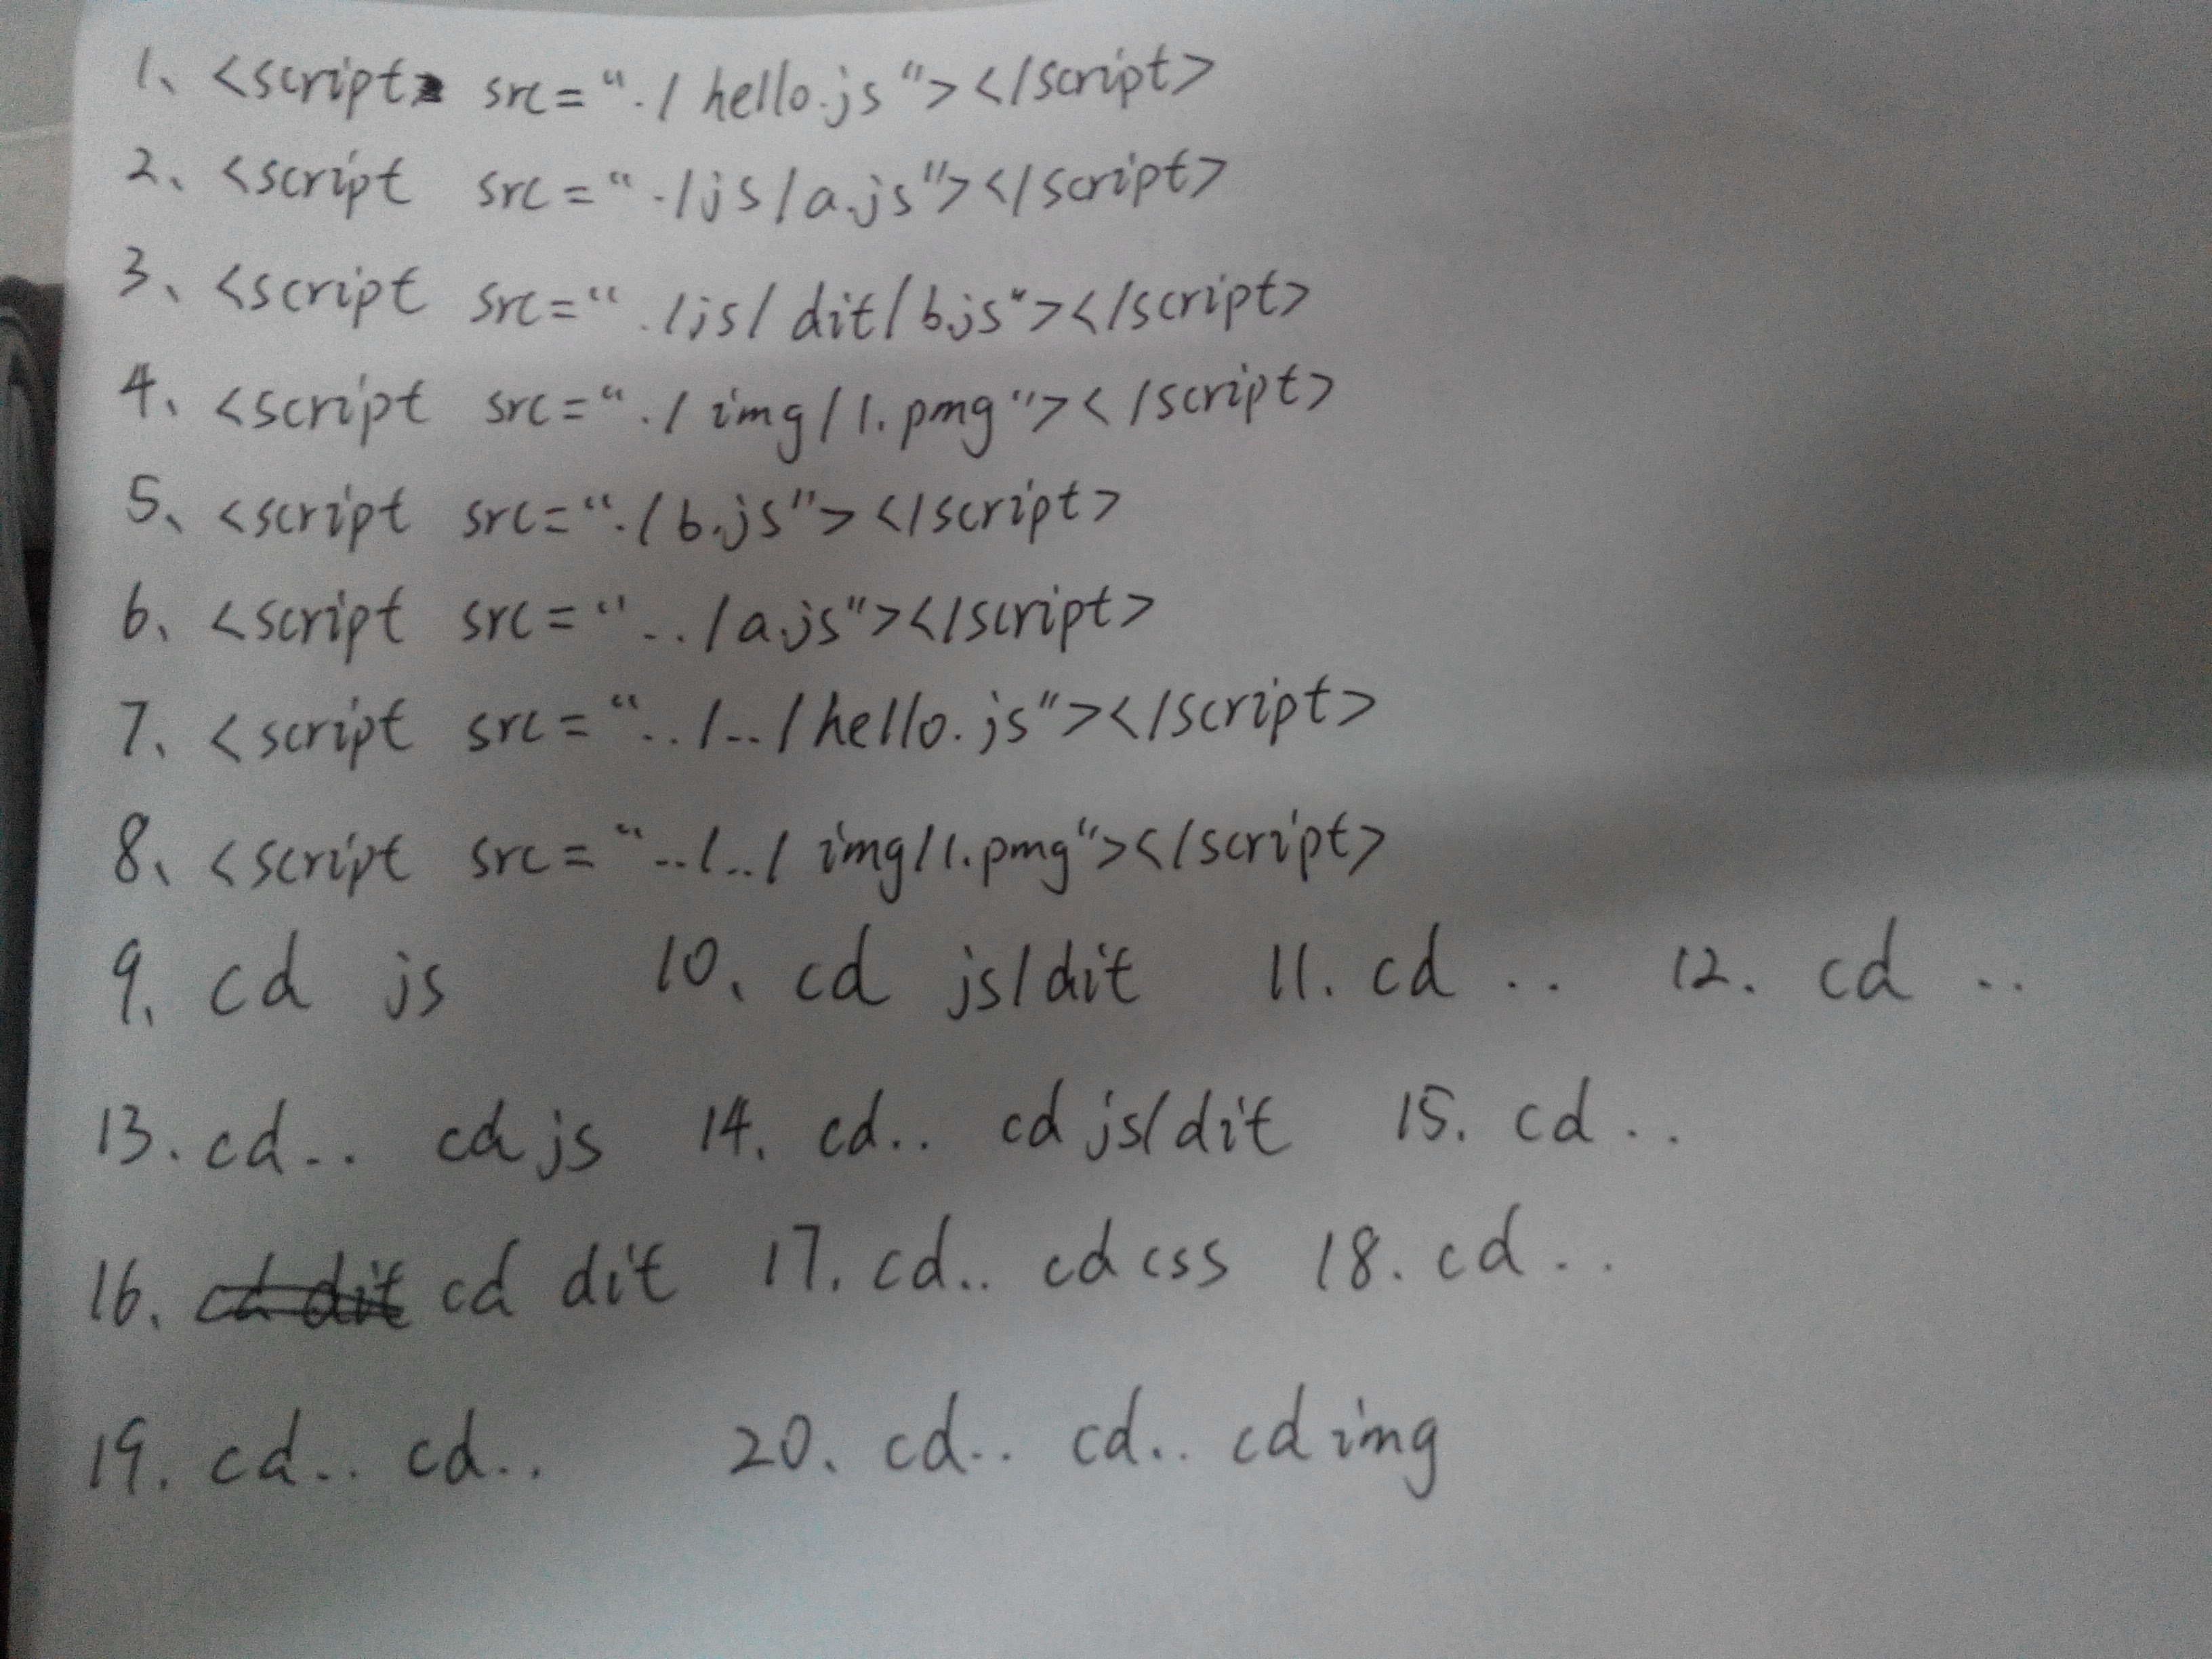 1、<script src="./hello.js"></script>
2、<script src="./js/a.js"></script>
3、<script src="./js/dit/b.js"></script>
4、<script src="./img/1.pmg"></script>
5、<script src="./b.js"></script>
6、<script src="../a.js"></script>
7、<script src="../../hello.js"></script>
8、<script src="../../img/1.pmg"></script>
9、cd js 10、cd js/dit 11. cd .. 12. cd ..
13. cd.. cd js 14. cd.. cd js/dit 15. cd ..
16、cd dit cd dit 17. cd.. cd css 18. cd ..
19. cd.. cd.. 20、cd.. cd.. cd img